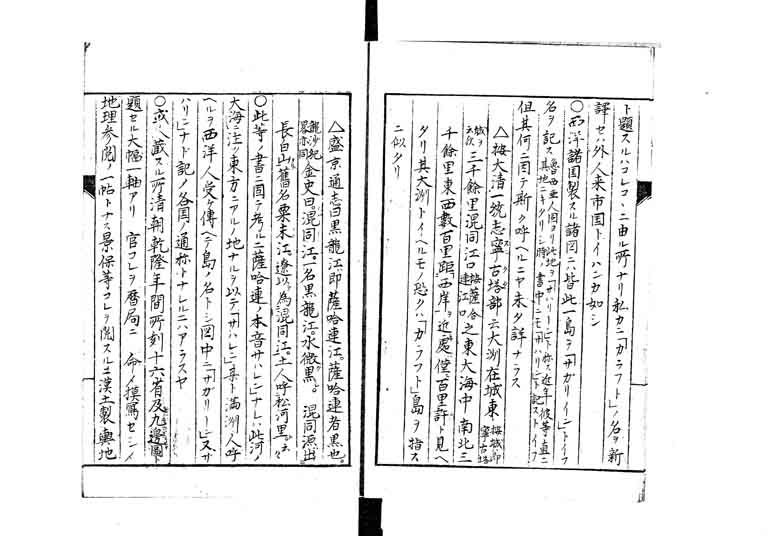 ト題スルハコレコヽニ由ル所ナリ私カニ「カラフト」ノ名ヲ新
譯セハ外人来市国トイハンカ如シ
〇西洋諸国製スル諸図ニハ皆此一島ヲ「サガリイン」トイフ
名ヲ記ス
但其何ニ因テ斯ク呼ヘルニヤ未タ詳ナラス
△按大清一統志寧古塔部云大洲在城東 按城即寧古塔
城ヲ云 三千餘里混同江口 按薩哈連江口 之東大海中南北三
千餘里東西數百里距西岸ヲ近處僅百里許ト見ヘ
タリ其大洲トイヘルモノ恐クハ「カラフト」島ヲ指ス
ニ似タリ
△盛京通志曰黒龍江即薩哈連江薩哈連者黒也
龍沙紀畧亦同 金史曰混同江一名黒龍江水微黒 混同源出
長白山舊名粟末江遼以為混同江土人呼松河里ト云々
〇此等ノ書ニ因テ考ルニ薩哈連ノ本音サハレンナレハ此河ノ
大海ニ注ク東方ニアルノ地ナルヲ以テ「サハレン」某ト満洲人呼
ヘルヲ西洋人受ケ傳ヘテ島ノ名トシ図中ニ「サガリーン」又「サ
ハリン」ナド記ノ各国ノ通称トナレルニハアラスヤ
〇或ハ蔵スル所清朝乾隆年間所刻十六省及九邊圖ト
題セル大幅一軸アリ 官コレヲ暦局ニ 命メ摸寫セシメ
地理参閲ノ一帖トナス景保等コレヲ閲スルニ漢土製輿地